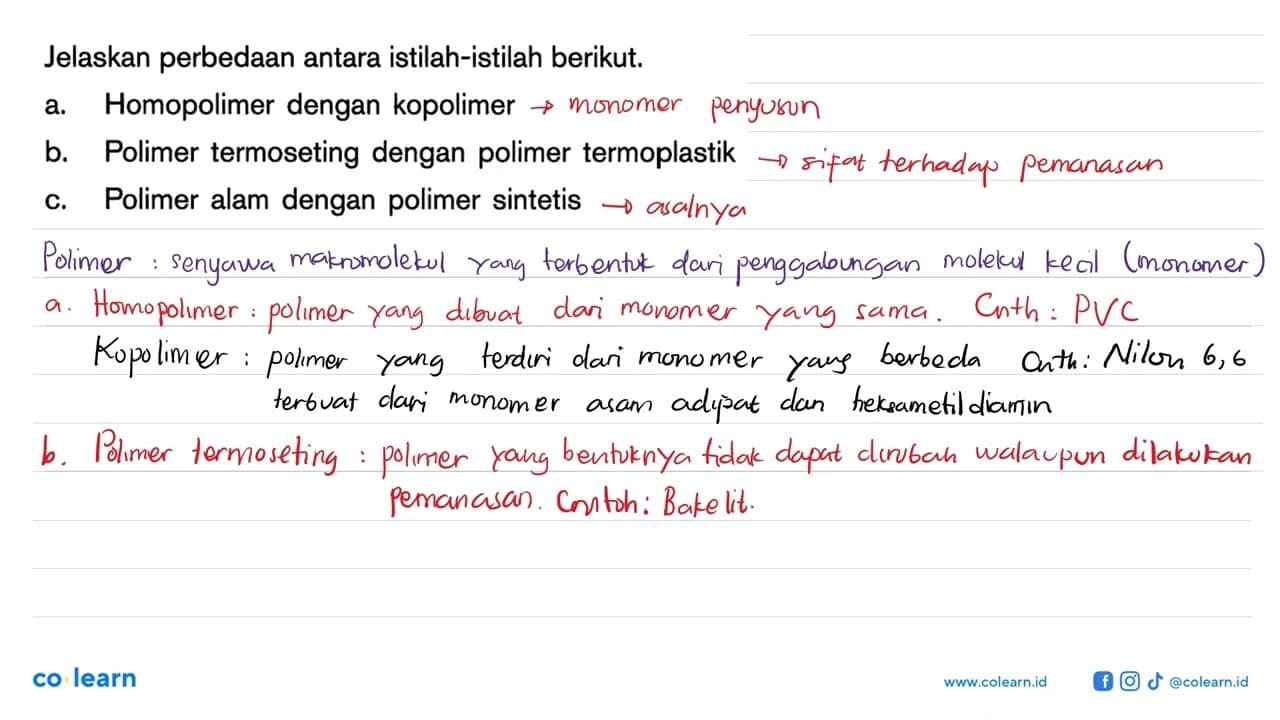 Jelaskan perbedaan antara istilah-istilah berikut.
a. Homopolimer dengan kopolimer → monomer penyusun
b. Polimer termoseting dengan polimer termoplastik → sifat terhadap pemanasan
c. Polimer alam dengan polimer sintetis → asalnya
Polimer : senyawa makromolekul yang terbentuk dari penggabungan molekul kecil (monomer)
a. Homopolimer : polimer yang dibuat dari monomer yang sama. Cnth : PVC
Kopolimer : polimer yang terdiri dari monomer yang berbeda Cnth : Nilon 6,6
terbuat dari monomer asam adipat dan heksametildiamin
b. Polimer termoseting : polimer yang bentuknya tidak dapat dirubah walaupun dilakukan
pemanasan. Contoh : Bakelit.
co learn
www.colearn.id @colearn.id